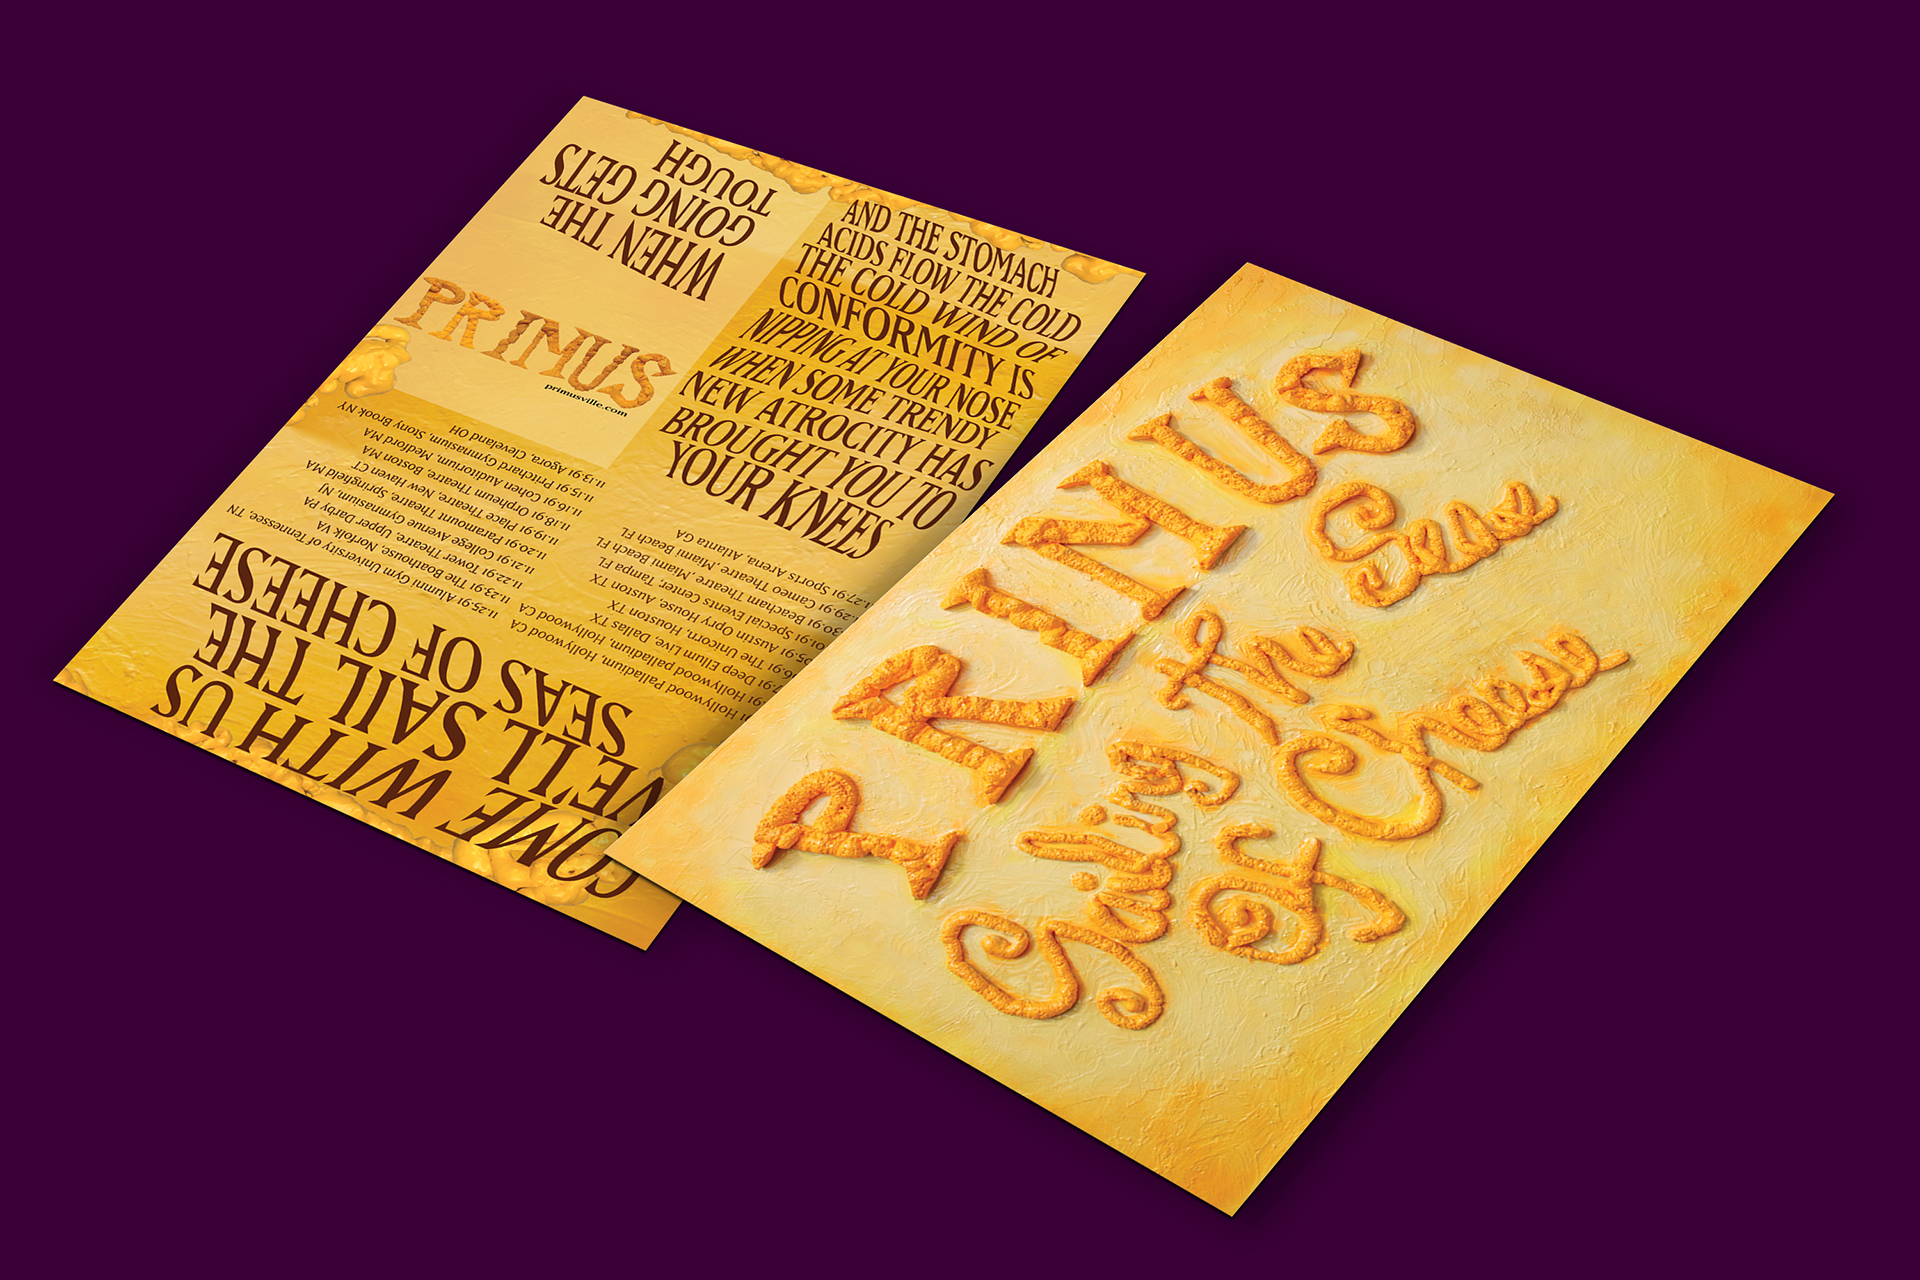 WHEN THE
GOING GETS
TOUGH
PRIMUS
primusville.com
AND THE STOMACH
ACIDS FLOW THE COLD
THE COLD WIND OF
CONFORMITY IS
NIPPING AT YOUR NOSE
WHEN SOME TRENDY
NEW ATROCITY HAS
BROUGHT YOU TO
YOUR KNEES
11.13.91 Agora, Cleveland OH
11.15.91 Pritchard Gymnasium, Stony Brook NY
11.16.91 Cohen Auditorium, Medford MA
11.18.91 Orpheum Theatre, Boston MA
11.19.91 Place Theatre, New Haven CT
11.20.91 Paramount Theatre, Springfield MA
11.21.91 College Avenue Gymnasium, NJ
11.22.91 Tower Theatre, Upper Darby PA
11.23.91 The Boathouse, Norfolk VA
11.25.91 Alumni Gym University of Tennessee, TN
1.27.91 Sports Arena, Atlanta GA
29.91 Cameo Theatre, Miami Beach FL
30.91 Beacham Theatre, Miami Beach FL
Special Events Center, Tampa FL
Austin Opry House, Auston TX
The Unicorn, Houston TX
Deep Ellum Live, Dallas TX
Hollywood palladium, Hollywood CA
Hollywood Palladium, Hollywood CA
COME WITH US
WE'LL SAIL THE
SEAS OF CHEESE
PRIMUS
Sailing the Seas
Of Cheese